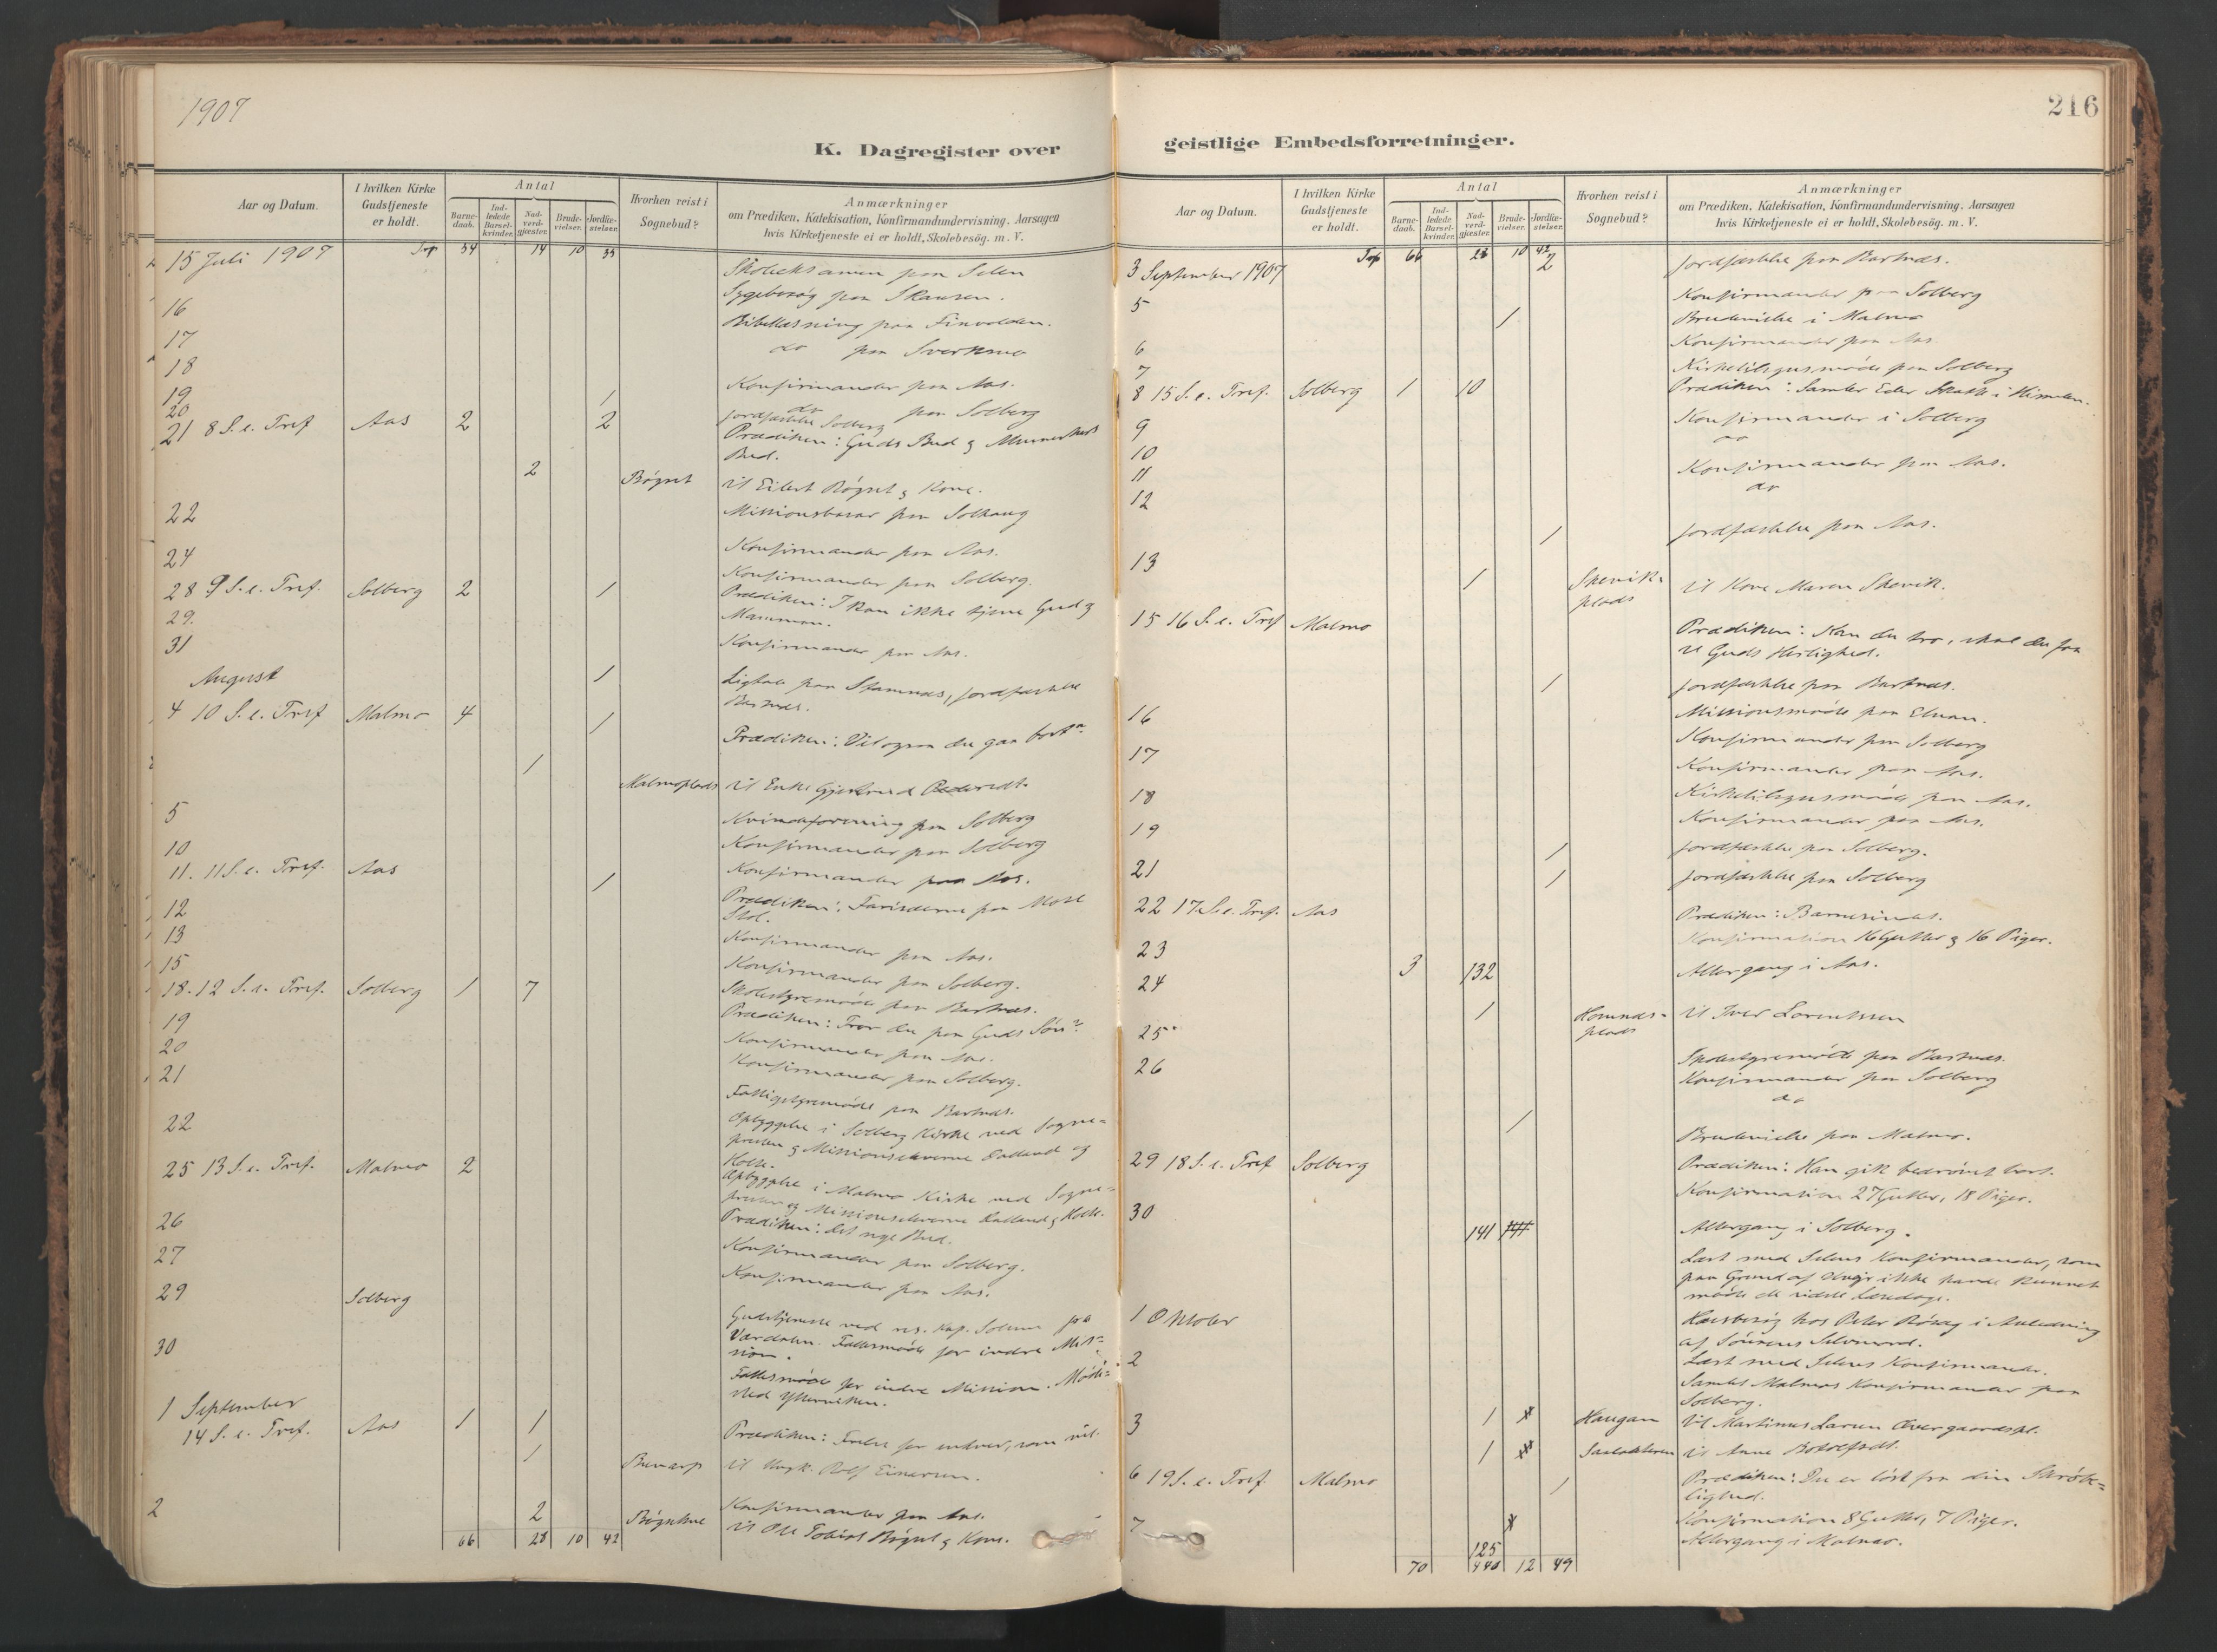 1907
K. Dagregister over
Aar og Datum.
I hvilken Kirke
Gudstjeneste
er holdt.
Antal
Barne-
daab.
Ind-
ledede
Barsel-
kvinder.
Nad-
verd-
gjæster.
Brude-
vielser.
Jordfæ-
stelser.
Hvorhen reist i
Sognebud?
Anmærkninger
om Prædiken, Katekisation, Konfirmandundervisning, Aarsagen
hvis Kirketjeneste ei er holdt, Skolebesög. m. V.
15 Juli 1907 54 14 10 35
Skoleeksamen paa Selen
16 Sygebesøg paa Skansen.
17 Bibellæsning paa Finvolden.
18 do paa Sverkmo
19 Konfirmander paa Aas.
20 1 do paa Solberg
jordfæstelse Solberg
21 8 S. e. Tref Aas 2 2
Prædiken: Guds Bud & Menneskers
Bud.
2 Bøgset til Eilert Bøgset & Kone.
22 Missionsbasar paa Solhaug
24 Konfirmander paa Aas.
Konfirmander paa Solberg.
28 9 S. e. Tref. Solberg 2 1
Prædiken: I kan ikke tjene Gud &
Mammon.
29.
31 Konfirmander paa Aas.
August 1
Ligtale paa Stamnes, jordfæstelse
Bartnes.
4 10 S. e. Tref Malmo 4 1
Prædiken: Vil ogsaa du gaa bort?
1 Malmoplads til Enke Gjertrud Pedersdt.
5 Kvindeforening paa Solberg
10 Konfirmander paa Solberg
11. 11 S. e. Tref. Aas 1
Konfirmander paa Aas.
Prædiken: Farisæerne paa Mose
Stol.
12 Konfirmander paa Aas.
13 Konfirmander paa Solberg.
15 Skolestyremøde paa Bartnes.
18. 12 S. e. Tref. Solberg 1 7
Prædiken: Tror du paa Guds Søn?
19 Konfirmander paa Aas.
20 Konfirmander paa Solberg.
21 Fattigstyremøde paa Bartnes.
22 Opbyggelse i Solberg Kirke ved Sogne-
presten & Missionselverne Dalland og
Holte.
Opbyggelse i Malmo Kirke ved Sogne-
presten og Missionselverne Dalland & Holte.
25 13 S. e. Tref. Malmo 2
Prædiken: Det nye Bud.
26 Konfirmander paa Solberg.
27 Konfirmander paa Aas.
29 Solberg
Gudstjeneste ved res. Kap. Solem fra
Værdalen. Fællesmøde for indre Mis-
sion.
30 Fællesmøde for indre Mission. Møde-
sted Ytterviken.
1 September
14 S. e. Tref. Aas 1 1
Prædiken: Frelse for enhver, som vil.
1 til Ungk. Rolf Einersen.
2 Konfirmander paa Aas.
2 til Ole Tobias Bøgset & Kone.
66 28 10 42
216
geistlige Embedsforretninger.
Aar og Datum.
I hvilken Kirke
Gudstjeneste
er holdt.
Antal
Barne-
daab.
Ind-
ledede
Barsel-
kvinder.
Nad-
verd-
gjæster.
Brude-
vielser.
Jordfæ-
stelser.
Hvorhen reist i
Sognebud?
Anmærkninger
om Prædiken, Katekisation, Konfirmandundervisning, Aarsagen
hvis Kirketjeneste ei er holdt, Skolebesög. m. V.
66 28 10 42
3 September 1907 2 jordfæstelse paa Bartnes.
5 Konfirmander paa Solberg
1 Brudevielse i Malmo
6 Konfirmander paa Aas
7 Kirketilsynsmøde paa Solberg
8 15 S. e. Tref. Solberg 1 10 Prædiken: Samler Eder Skatte i Himmelen.
9 Konfirmander i Solberg
10 do
11 Konfirmander paa Aas.
12 do
1 jordfæstelse paa Aas.
13 1 Skevik-
plads
til Kone Maren Skevik.
15 16 S. e. Tref Malmo
Prædiken: Kan du tro, skal du faa
se Guds Herlighed.
1 jordfæstelse paa Bartnes.
16 Missionsmøde paa Elnan.
17 Konfirmander paa Solberg
Konfirmander paa Aas.
18 Kirketilsynsmøde paa Aas.
19 Konfirmander paa Aas.
1 jordfæstelse paa Solberg.
21 1 jordfæstelse paa Solberg
22 17. S. e. Tref. Aas Prædiken: Barnesindet.
Konfirmation 16 Gutter & 16 Piger.
23 3 132 Altergang i Aas.
24 1 til Iver Lorentssen
25 Skolestyremøde paa Bartnes.
26 Konfirmander paa Solberg
do
1 Brudevielse paa Malmo.
29 18 S. e. Tref Solberg Prædiken: Han gik bedrøvet bort.
Konfirmation 27 Gutter, 18 Piger.
30 141 Altergang i Solberg.
Læst med Selens Konfirmander, som
paa Grund af Uveir ikke havde kunnet
møde de sidste Læsedage.
1 Oktober Husbesøg hos Peter Røseg i Anledning
af Sønnens Selvmord.
2 Læst med Selens Konfirmander.
Samlet Malmos Konfirmander paa
Solberg.
3 1 Haugan til Martinus Larsen Overgaardspl.
1 til Anne Botolfsdt.
6 19 S. e. Tref. Malmo 1
Prædiken: Du er løst fra din Skrøbe-
lighed.
Konfirmation 8 Gutter, 7 Piger.
7 125 Altergang i Malmo.
70 440 12 49